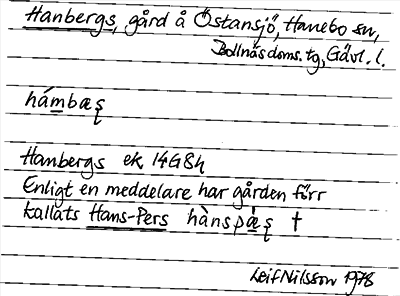 Hanbergs, gård å Östansjö, Hanebo sn,
Bollnäs doms. tg, Gävl. l.
hámbæʂ
Hanbergs ek. 14G8h
Enligt en meddelare har gården förr
kallats Hans-Pers hànspǽʂ †
Leif Nilsson 1978